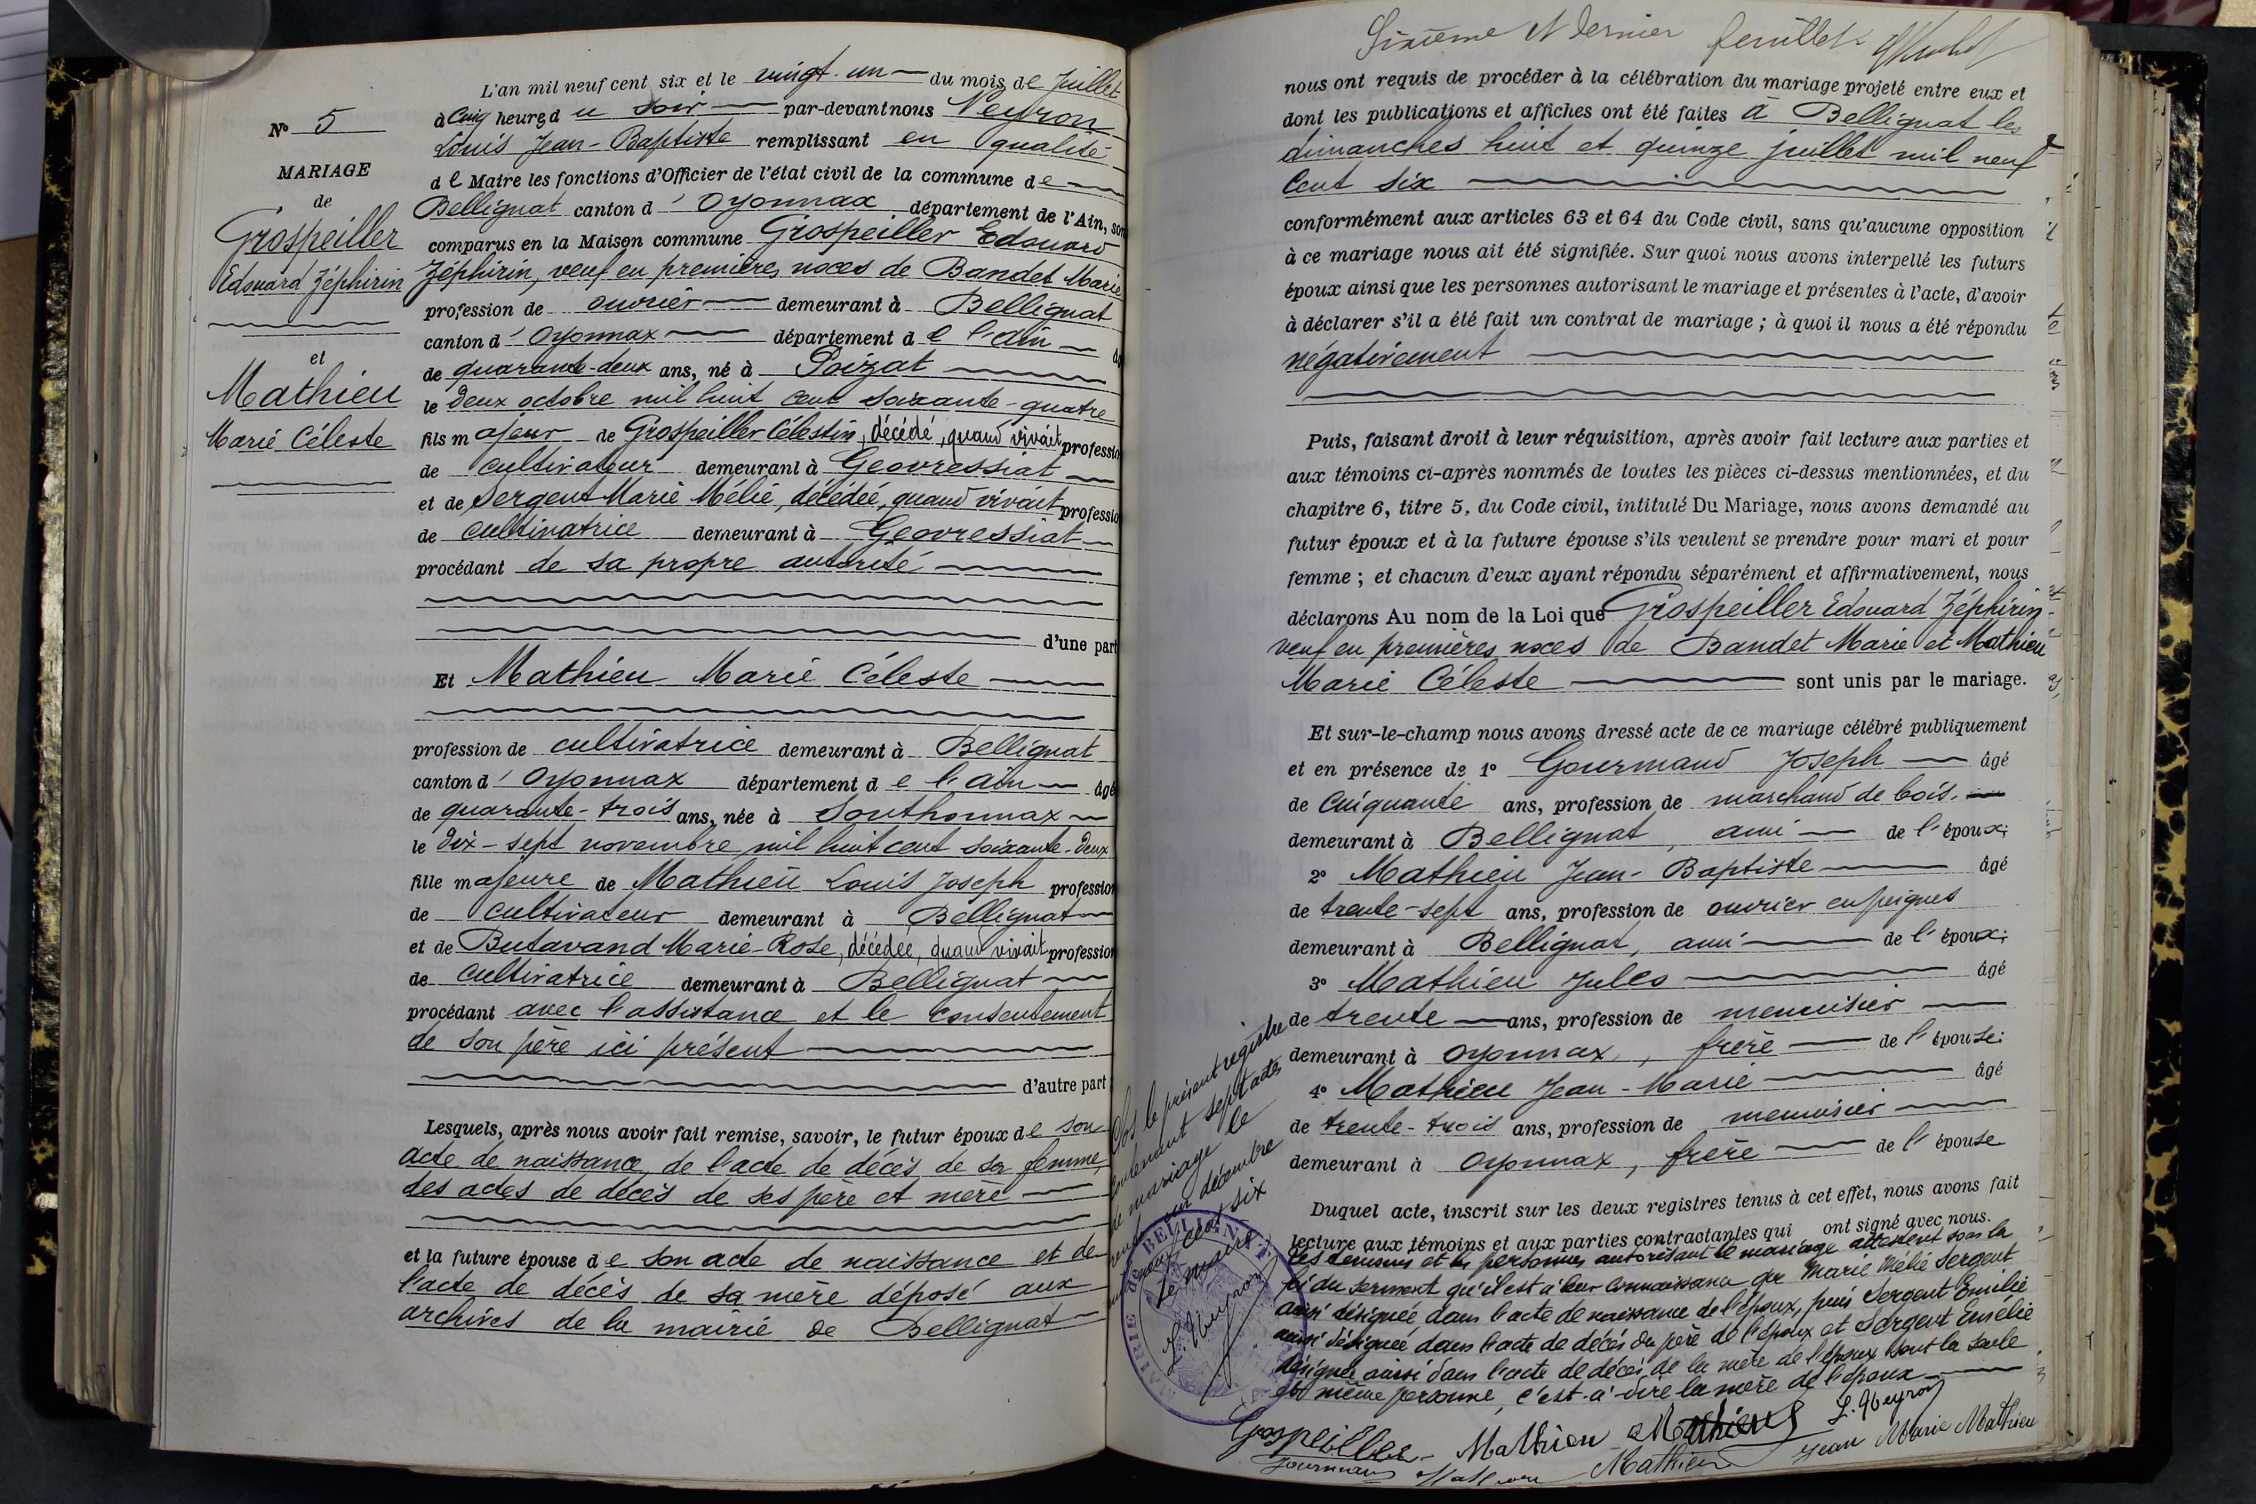 N° 5
MARIAGE
de
Grospeiller
Edouard Zéphirin
et
Mathieu
Marie Céleste
L'an mil neuf cent six et le vingt-un du mois de Juillet
à cinq heures du soir par-devant nous Neyron
Louis Jean-Baptiste remplissant en qualité
de Maire les fonctions d'Officier de l'état civil de la commune de
Bellignat canton d'Oyonnax département de l'Ain, sont
comparus en la Maison commune Grospeiller Edouard
Zéphirin, veuf en premières noces de Bandet Marie
profession de ouvrier demeurant à Bellignat
canton d'Oyonnax département de l'Ain
de quarante-deux ans, né à Poizat
le deux octobre mil huit cent soixante-quatre
fils majeur de Grospeiller Célestin, décédé, quand vivait profession
de cultivateur demeurant à Geovressiat
et de Sergent Marie Mélie, décédée, quand vivait profession
de cultivatrice demeurant à Geovressiat
procédant de sa propre autorité
d'une part
Et Mathieu Marie Céleste
profession de cultivatrice demeurant à Bellignat
canton d'Oyonnax département de l'Ain âgé
de quarante-trois ans, née à Sonthonnax
le dix-sept novembre mil huit cent soixante-deux
fille majeure de Mathieu Louis Joseph profession
de cultivateur demeurant à Bellignat
et de Butavand Marie-Rose, décédée, quand vivait profession
de cultivatrice demeurant à Bellignat
procédant avec l'assistance et le consentement
de son père ici présent
d'autre part
Lesquels, après nous avoir fait remise, savoir, le futur époux de son
acte de naissance, de l'acte de décès de sa femme,
des actes de décès de ses père et mère
et la future épouse de son acte de naissance et de
l'acte de décès de sa mère déposé aux
archives de la mairie de Bellignat
Sixième et dernier feuillet
nous ont requis de procéder à la célébration du mariage projeté entre eux et
dont les publications et affiches ont été faites à Bellignat les
dimanches huit et quinze juillet mil neuf
cent six
conformément aux articles 63 et 64 du Code civil, sans qu'aucune opposition
à ce mariage nous ait été signifiée. Sur quoi nous avons interpellé les futurs
époux ainsi que les personnes autorisant le mariage et présentes à l'acte, d'avoir
à déclarer s'il a été fait un contrat de mariage ; à quoi il nous a été répondu
négativement
Puis, faisant droit à leur réquisition, après avoir fait lecture aux parties et
aux témoins ci-après nommés de toutes les pièces ci-dessus mentionnées, et du
chapitre 6, titre 5, du Code civil, intitulé Du Mariage, nous avons demandé au
futur époux et à la future épouse s'ils veulent se prendre pour mari et pour
femme ; et chacun d'eux ayant répondu séparément et affirmativement, nous
déclarons Au nom de la Loi que Grospeiller Edouard Zéphirin
veuf en premières noces de Bandet Marie et Mathieu
Marie Céleste sont unis par le mariage.
Et sur-le-champ nous avons dressé acte de ce mariage célébré publiquement
et en présence de 1° Gourmand Joseph âgé
de cinquante ans, profession de marchand de bois
demeurant à Bellignat, ami de l'époux;
2° Mathieu Jean-Baptiste âgé
de trente-sept ans, profession de ouvrier en peignes
demeurant à Bellignat, ami de l'époux;
3° Mathieu Jules âgé
de trente ans, profession de menuisier
demeurant à Oyonnax, frère de l'épouse:
4° Mathieu Jean-Marie âgé
de trente-trois ans, profession de menuisier
demeurant à Oyonnax, frère de l'épouse
Duquel acte, inscrit sur les deux registres tenus à cet effet, nous avons fait
lecture aux témoins et aux parties contractantes qui ont signé avec nous.
Les témoins et les personnes autorisant le mariage attestent sous la
foi du serment qu'il est à leur connaissance que Marie Mélie Sergent
ainsi désignée dans l'acte de naissance de l'époux, puis Sergent Emilie
aussi désignée dans l'acte de décès du père de l'époux et Sergent Emélie
désignée ainsi dans l'acte de décès de la mère de l'époux sont la seule
et même personne, c'est-à-dire la mère de l'époux
Clos le présent registre
contenant sept actes
de mariage le
trente un décembre
mil neuf cent six
Le Maire
L. Neyron
MAIRIE DE BELLIGNAT
Grospeiller Mathieu Mathieu L. Neyron
Gourmand Mathieu Mathieu Jean Marie Mathieu